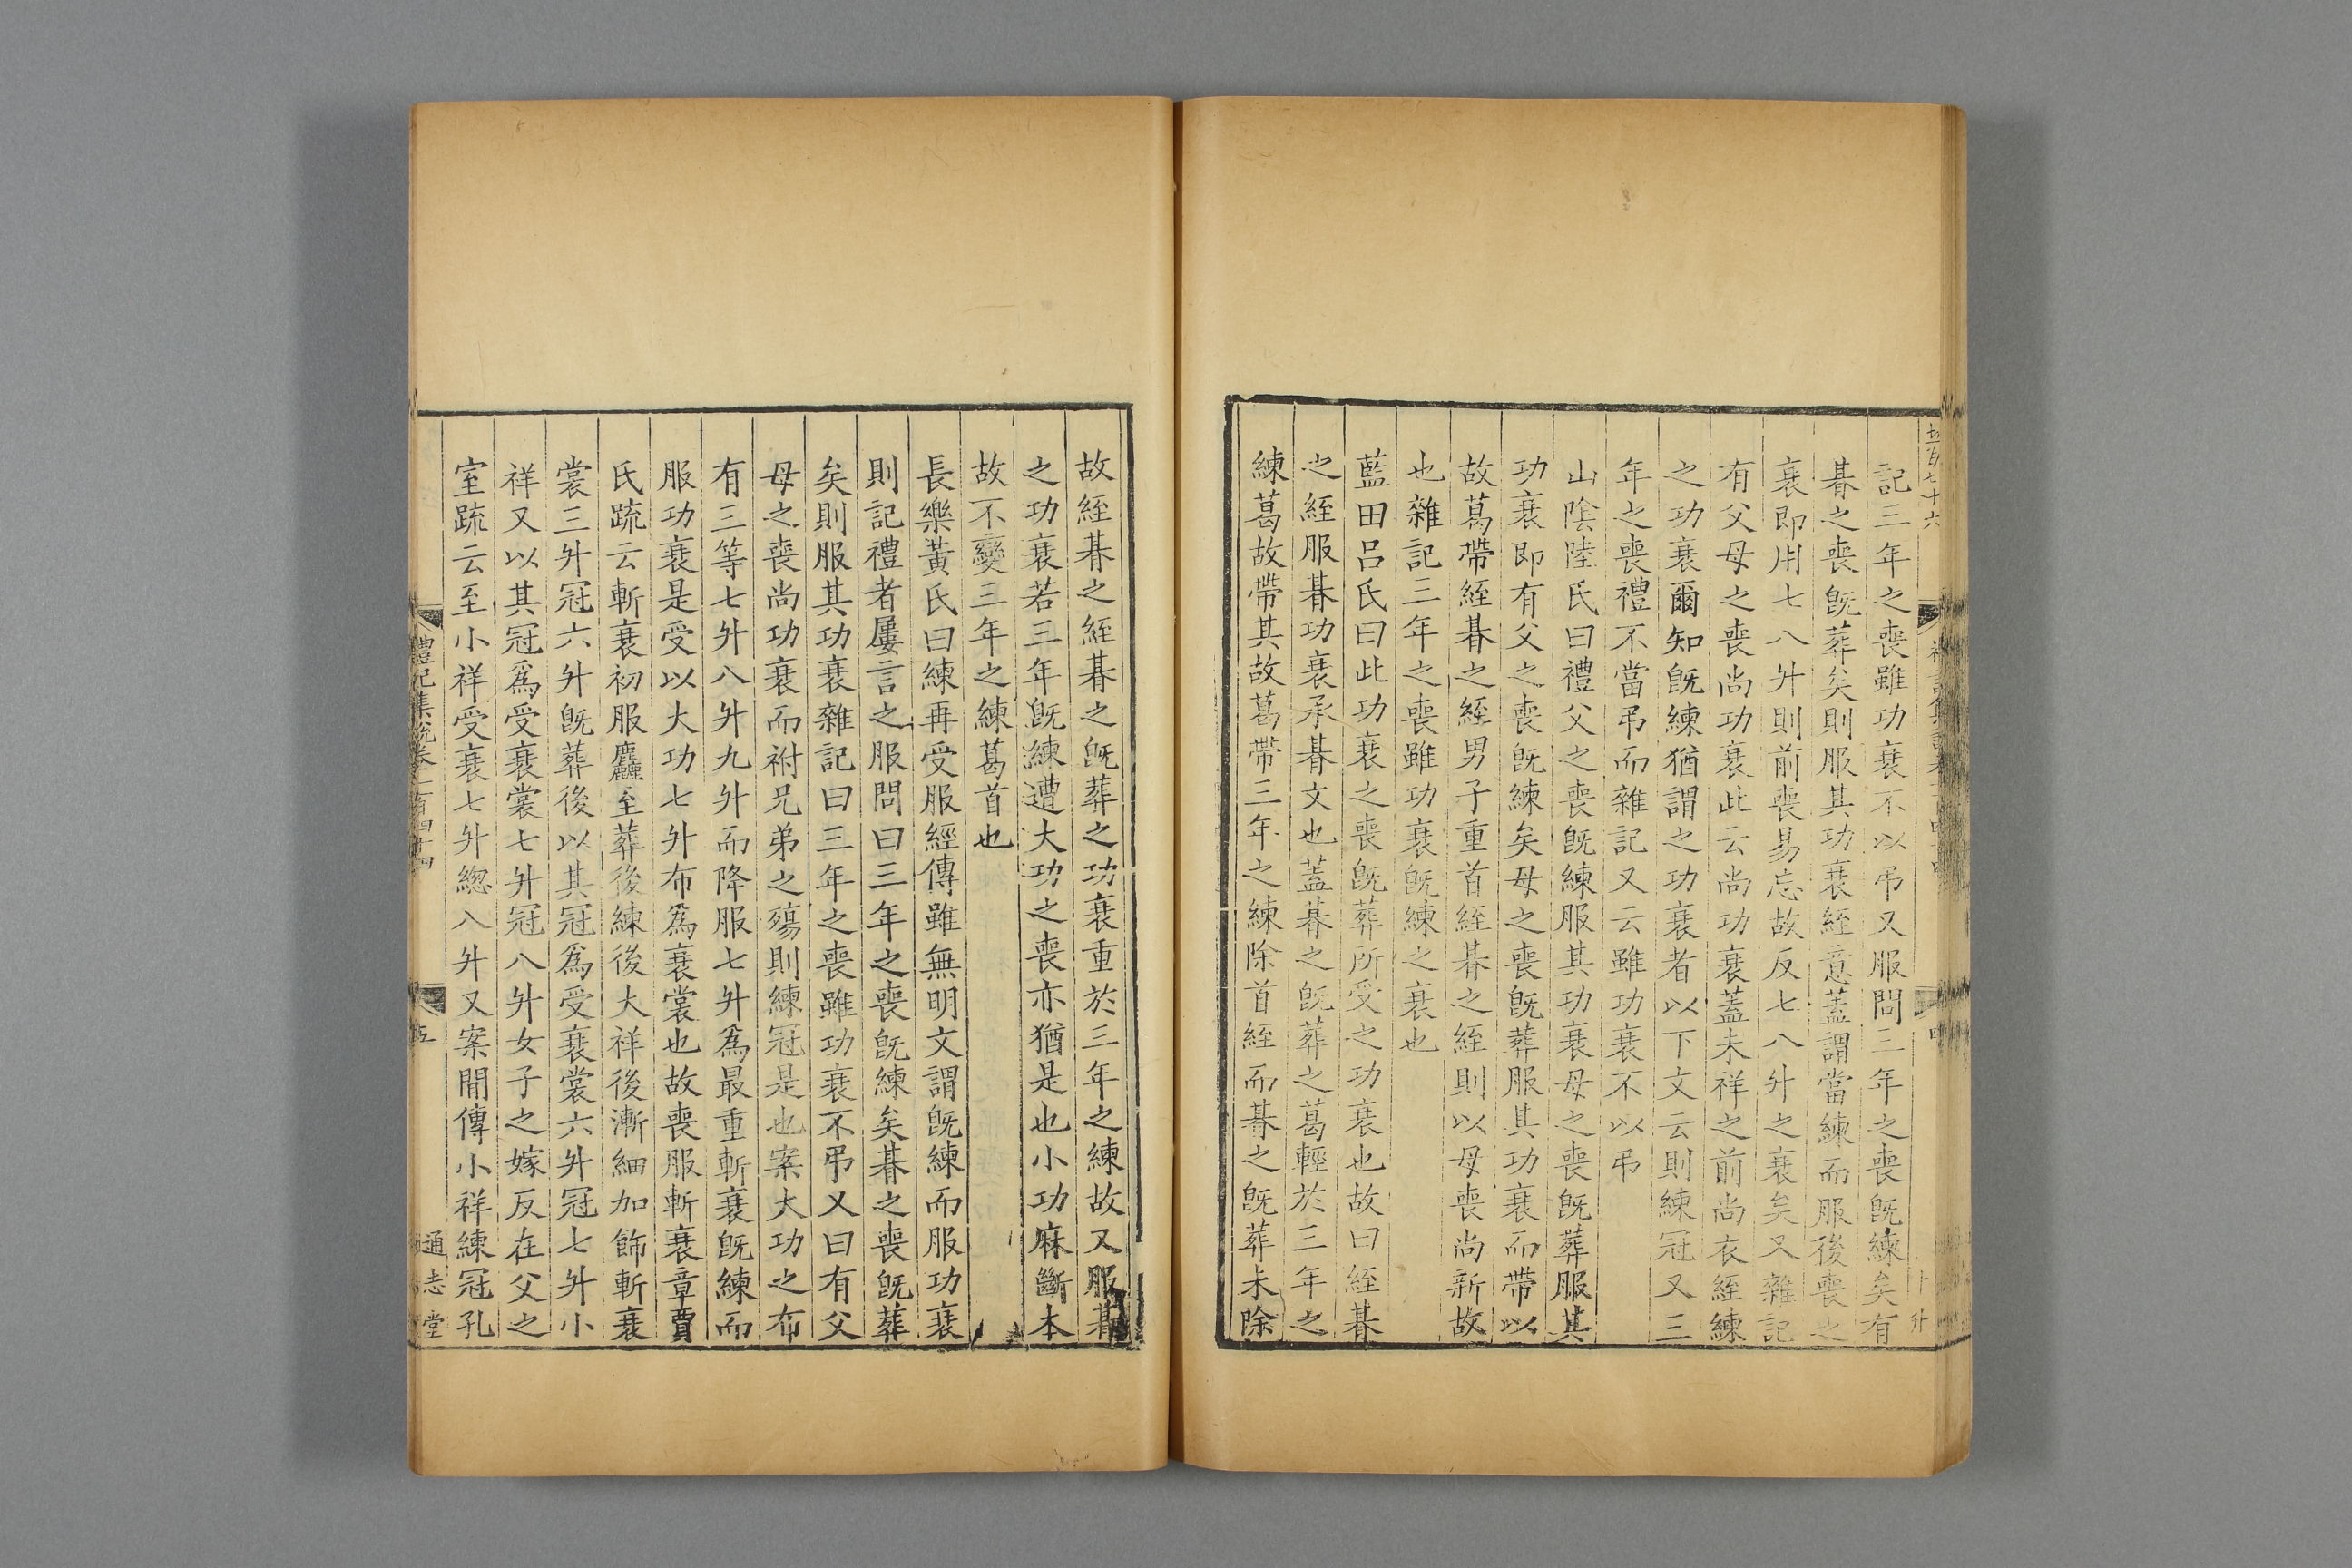 記三年之喪雖功衰不以弔又服問三年之喪旣練矣有
朞之喪旣葬矣則服其功衰經意蓋謂當練而服後喪之
衰即用七八升則前喪易忘故反七八升之衰矣又雜記
有父母之喪尚功衰此云尚功衰蓋未祥之前尚衣絰練
之功衰爾知旣練猶謂之功衰者以下文云則練冠又三
年之喪禮不當弔而雜記又云雖功衰不以弔
山陰陸氏曰禮父之喪旣練服其功衰母之喪旣葬服其
功衰即有父之喪旣練矣母之喪旣葬服其功衰而帶以
故葛帶絰朞之絰男子重首絰朞之絰則以母喪尚新故
也雜記三年之喪雖功衰旣練之衰也
藍田呂氏曰此功衰之喪旣葬所受之功衰也故曰絰朞
之絰服朞功衰承朞文也蓋朞之旣葬之葛輕於三年之
練葛故帶其故葛帶三年之練除首絰而朞之旣葬未除
故絰朞之絰朞之旣葬之功衰重於三年之練故又服朞
之功衰若三年旣練遭大功之喪亦猶是也小功麻斷本
故不變三年之練葛首也
長樂黃氏曰練再受服經傳雖無明文謂旣練而服功衰
則記禮者屢言之服問曰三年之喪旣練矣朞之喪旣葬
矣則服其功衰雜記曰三年之喪雖功衰不弔又曰有父
母之喪尚功衰而祔兄弟之殤則練冠是也案大功之布
有三等七升八升九升而降服七升爲最重斬衰旣練而
服功衰是受以大功七升布爲衰裳也故喪服斬衰章賈
氏疏云斬衰初服麤至葬後練後大祥後漸細加飾斬衰
裳三升冠六升旣葬後以其冠爲受衰裳六升冠七升小
祥又以其冠爲受衰裳七升冠八升女子之嫁反在父之
室疏云至小祥受衰七升緫八升又案間傳小祥練冠孔
禮記集說卷一百四十四
五
通志堂